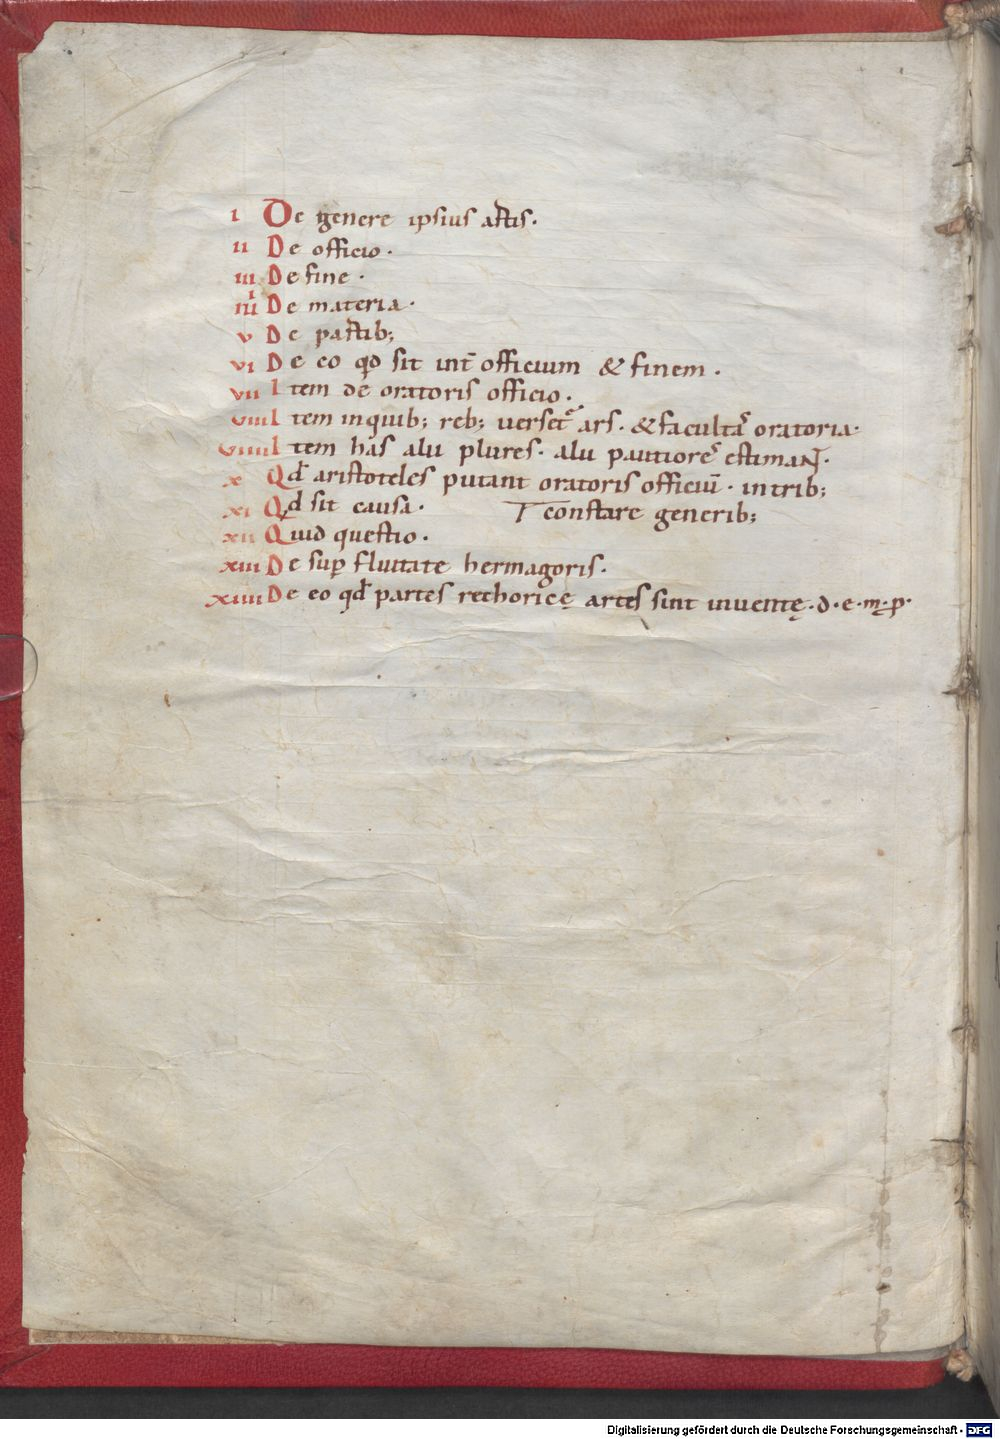 i De genere ipsius artis.
ii De officio.
iii De fine.
iiii De materia.
v De partib;
vi De eo qđ sit int̄ officium & finem.
vii Item de oratoris officio.
viii Item in quib; reb; verset᷑ ars. & facultā oratoria.
viiii Item has alii plures. alii pautiores estimaɴ̄.
x Qđ aristoteles putant oratoris officiū. in trib;
xi Qđ sit causa. constare generib;
xii Quid questio.
xiii De sup fluitate hermagoris.
xiiii De eo qđ partes rethoricę artes sint inventę. d. e. m. p.
Digitalisierung gefördert durch die Deutsche Forschungsgemeinschaft - DFG